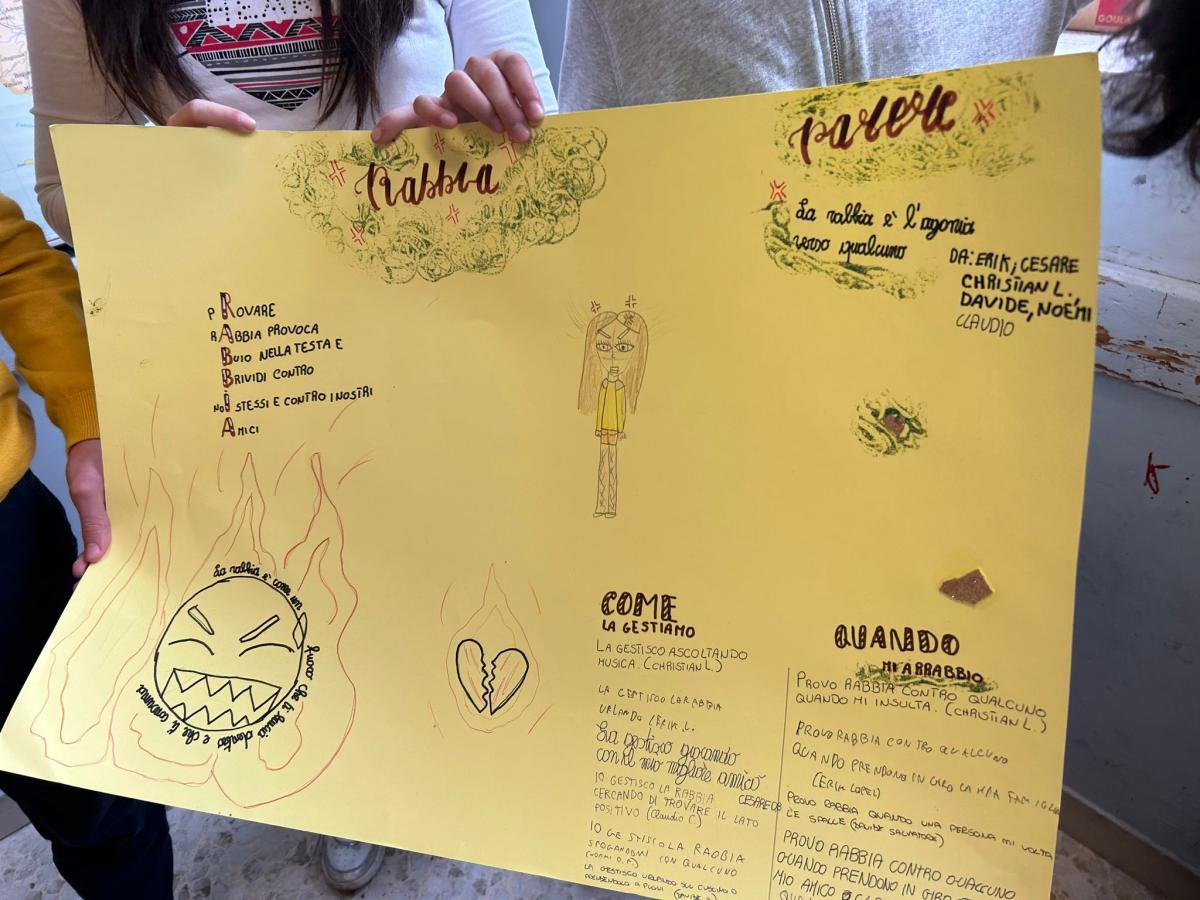 Rabbia
parere
La rabbia è l'agonia
verso qualcuno
DA: ERIK, CESARE
CHRISTIAN L.
DAVIDE, NOEMI
CLAUDIO
PROVARE
RABBIA PROVOCA
BUIO NELLA TESTA E
BRIVIDI CONTRO
NOI STESSI E CONTRO I NOSTRI
AMICI
La rabbia è come un fuoco che ti brucia dentro e che ti consuma
COME
LA GESTIAMO
LA GESTISCO ASCOLTANDO
MUSICA. (CHRISTIAN L.)
LA GESTISCO LA RABBIA
URLANDO (ERIK L.
La gestisco giocando
con il mio migliore amico
CESARE DB
IO GESTISCO LA RABBIA
CERCANDO DI TROVARE IL LATO
POSITIVO (Claudio C)
IO GESTISCO LA RABBIA
SFOGANDOMI CON QUALCUNO
(NOEMI D.F)
LA GESTISCO URLANDO SUL CUSCINO O
PRENDENDOLO A PUGNI
QUANDO
MI ARRABBIO
PROVO RABBIA CONTRO QUALCUNO
QUANDO MI INSULTA. (CHRISTIAN L.)
PROVO RABBIA CONTRO QUALCUNO
QUANDO PRENDONO IN GIRO LA MIA FAMIGLIA
(ERIK LOPEL)
PROVO RABBIA QUANDO UNA PERSONA MI VOLTA
LE SPALLE (DAVIDE SALVATORE)
PROVO RABBIA CONTRO QUALCUNO
QUANDO PRENDONO IN GIRO
MIO AMICO
GOUL